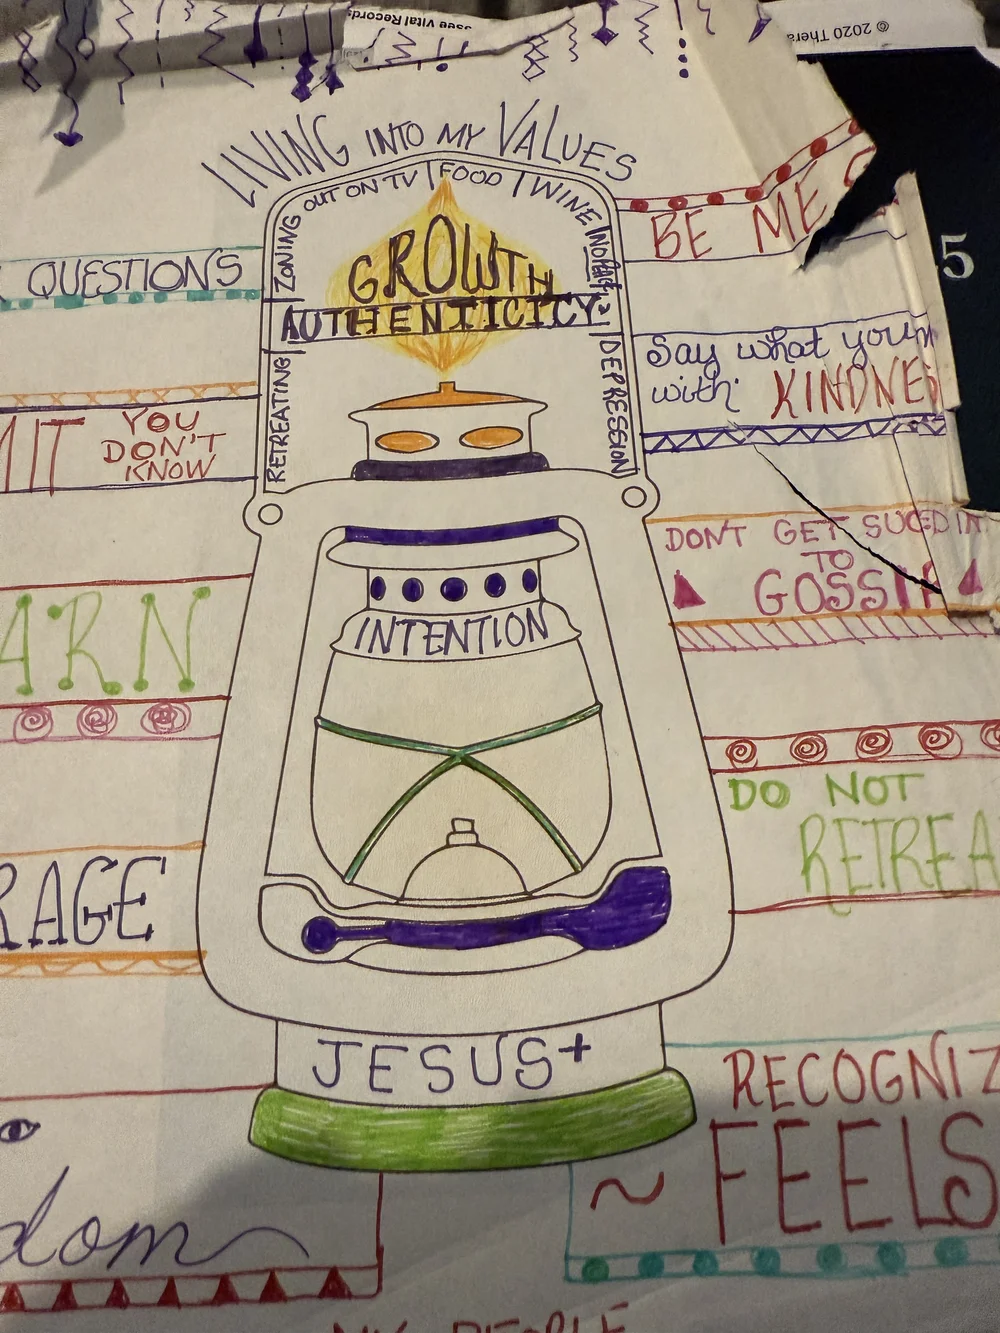 © 2020 Thera
ssee Vital Records
LIVING INTO MY VALUES
ZONING OUT ON TV | FOOD | WINE
GROWTH
AUTHENTICITY
RETREATING
DEPRESSION
QUESTIONS
BE ME
5
Say what you
with KINDNES
MIT YOU
DON'T
KNOW
DONT GET SUCED IN
TO
GOSSIP
INTENTION
ARN
DO NOT
RETREA
RAGE
JESUS+
RECOGNIZ
~ FEELS
dom
MY PEOPLE